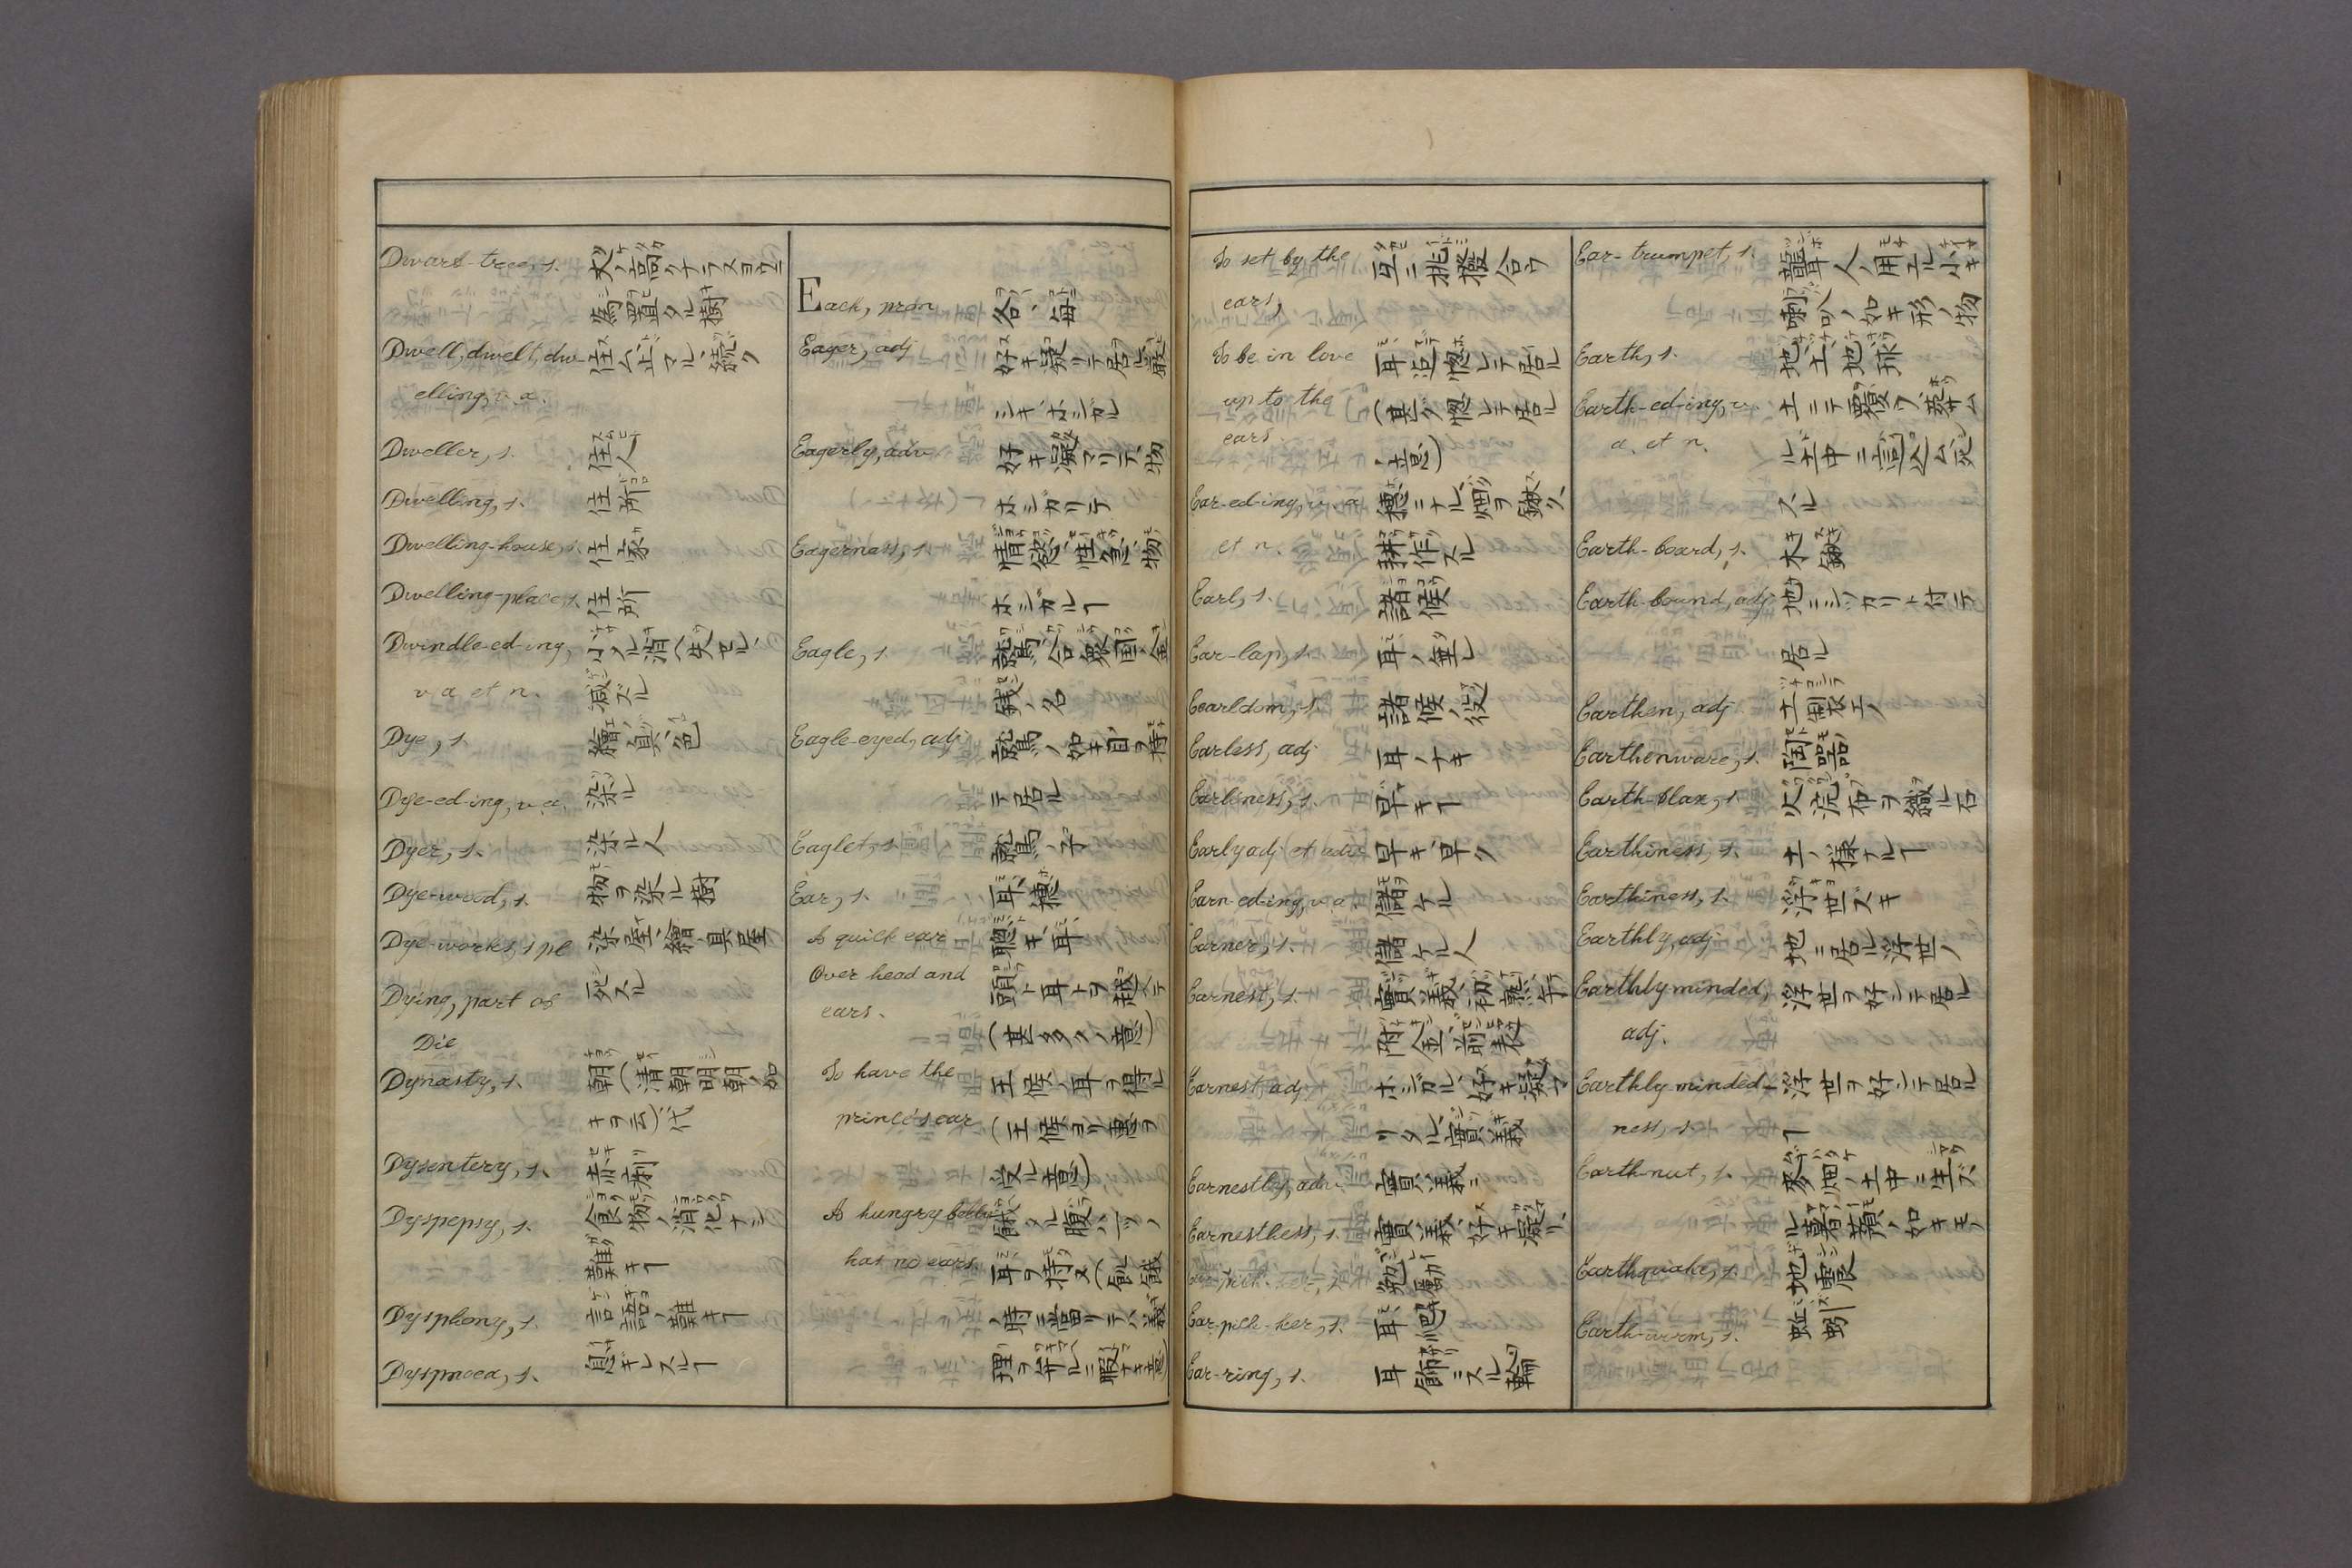 Dwarf-tree, s. 丈ノ高クナラヌヨウニ
爲置タル樹
Dwell, dwelt, dw- 住ム、止マル、續ク
elling, v. a.
Dweller, s. 住人
Dwelling, s. 住所
Dwelling-house, s. 住家
Dwelling-place, s. 住所
Dwindle-ed-ing, 小クナル、消ヘ失セル、
v a et n. 減ズル
Dye, s. 繪ノ具、色
Dye-ed-ing, v. a. 染ル
Dyer, s. 染ル人
Dye-wood, s. 物ヲ染ル樹
Dye-works, s pl 染屋、繪ノ具屋
Dying, part of 死スル
Die
Dynasty, s. 朝(清朝明朝ノ如
キヲ云)代
Dysentery, s. 赤痢
Dyspepsy, s. 食物ノ消化ナシ
難キヿ
Dysphony, s. 言語ノ難キヿ
Dyspnoea, s. 息ギレスルヿ
Each, pron 各、毎
Eager, adj 好キ凝リテ居ル、嚴
シキ、ホシガル
Eagerly, adv. 好キ凝マリテ、物
ホシガリテ
Eagerness, s. 情慾、性急、物
ホシガルヿ
Eagle, s. 鷲、合衆國ノ金
錢ノ名
Eagle-eyed, adj. 鷲ノ如キ目ヲ持
テ居ル
Eaglet, s. 鷲ノ子
Ear, s. 耳、穗
A quick ear 聰キ耳
Over head and 頭ト耳トヲ越ヘテ
ears. (甚多クノ意)
To have the 王侯ノ耳ヲ得ル
prince's ear (王侯ヨリ惠ヲ
受ル意)
A hungry belly 餓タル腹ハ一ツノ
has no ears. 耳ヲ持ヌ(飢餓
ノ時ニ當リテハ義
理ヲ弁ルニ暇ナキ意)
To set by the 互ニ挑撥合フ
ears,
To be in love 耳迄惚レテ居ル
up to the (甚ク惚レテ居ル
ears. ノ意)
Ear-ed-ing, v. a 穗ニナル、畑ヲ鍬ク、
et n. 耕作スル
Earl, s. 諸侯
Ear-lap, s. 耳ノ垂レ
Earldom, s. 諸侯ノ役
Earless, adj 耳ノナキ
Earliness, s. 早キヿ
Early adj et adv 早キ、早ク
Earn-ed-ing, v. a. 儲ケル
Earner, s. 儲ケル人
Earnest, s. 實義、初熟、手
附金、前表
Earnest, adj. ホシガル、好キ凝マ
リタル、實義
Earnestly, adv. 實義ニ
Earnestness, s. 實義、好キ凝リ、
勉勵
Ear-pick-ker, s. 耳爬
Ear-ring, s. 耳飾ニスル輪
Ear-trumpet, s. 聾人ノ用エル小キ
喇叭ノ如キ形ノ物
Earth, s. 地、土、地球
Earth-ed-ing, v. 土ニテ覆フ、葬ム
a. et n. ル、土中ニ這込ム、死
スル
Earth-board, s. 木鋤
Earth-bound, adj. 地ニシツカリト付テ
居ル
Earthen, adj 土製エノ
Earthenware, s. 陶器
Earth-flax, s. 火浣布ヲ織ル石
Earthiness, s. 土ノ樣ナルヿ
Earthiness, s. 浮世ズキ
Earthly, adj. 地ニ居ル、浮世ノ
Earthly-minded, 浮世ヲ好ンテ居ル
adj.
Earthly minded- 浮世ヲ好ンテ居ル
ness, s. ヿ
Earth-nut, s. 麥畑ノ土中ニ生ズ
ル薯蕷ノ如キモノ
Earthquake, s. 地震
Earth-worm, s. 蚯蚓